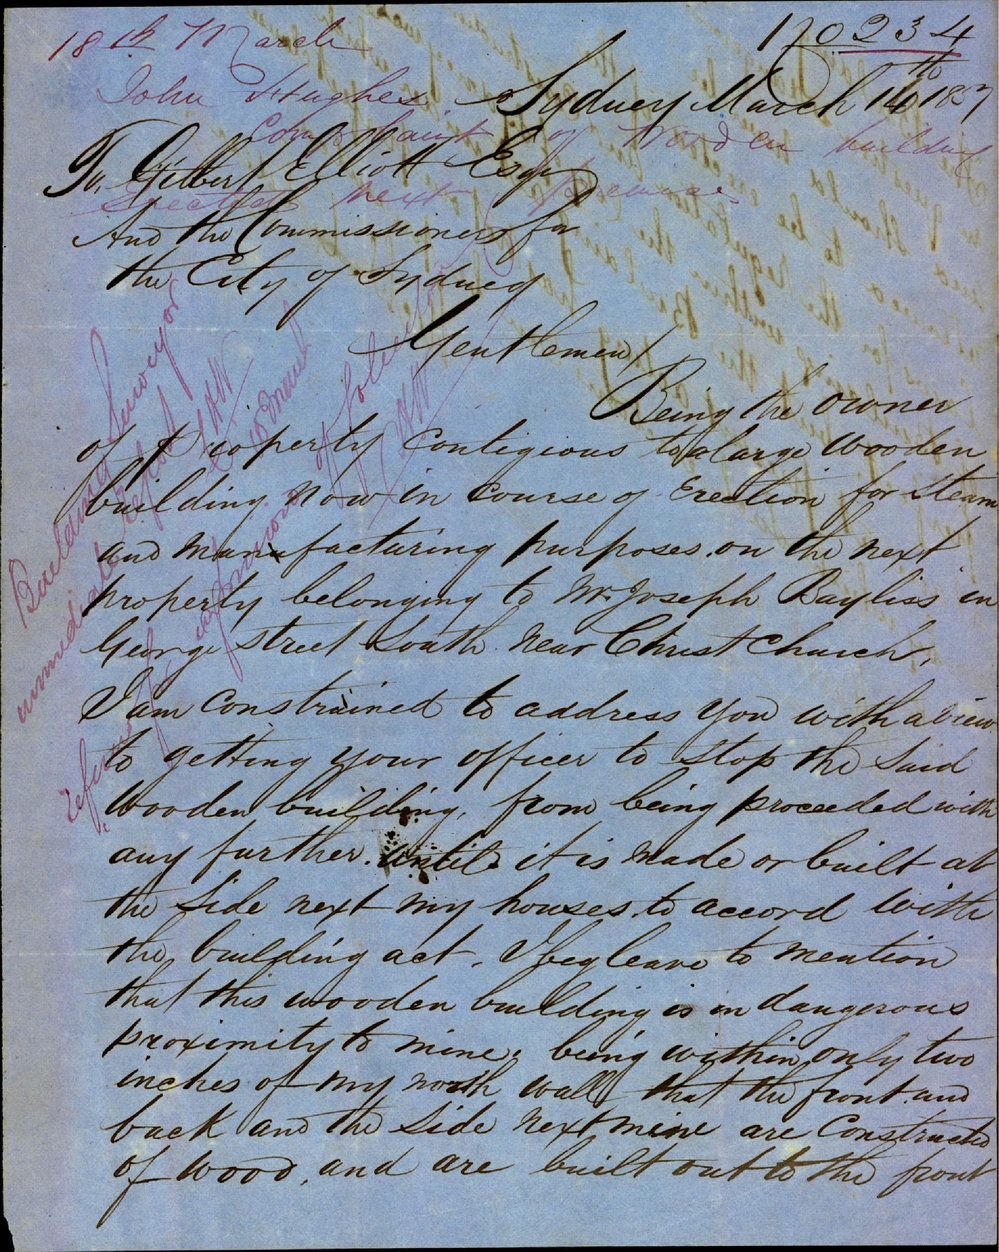 18th March
John Hughes
Complaint of Wooden building
Erected next Premises
170234
Sydney March 14th 1857
To, Gilbert Elliott Esqr
And the Commissioners for
the City of Sydney
Gentlemen/
Being the owner
of property contigious to a large wooden
building now in course of Erection for steam
and manufacturing purposes. on the next
property belonging to Mr Joseph Bayliss in
George Street South near Christ Church.
I am constrained to address you with a view
to getting your officer to stop the said
wooden building, from being proceeded with
any further. until it is made or built at
the side next my houses. to accord with
the building act. I beg leave to mention
that this wooden building is in dangerous
proximity to mine. being within only two
inches of my north wall that the front. and
back and the side next mine are constructed
of wood, and are built out to the front
Building Surveyor
immediate report